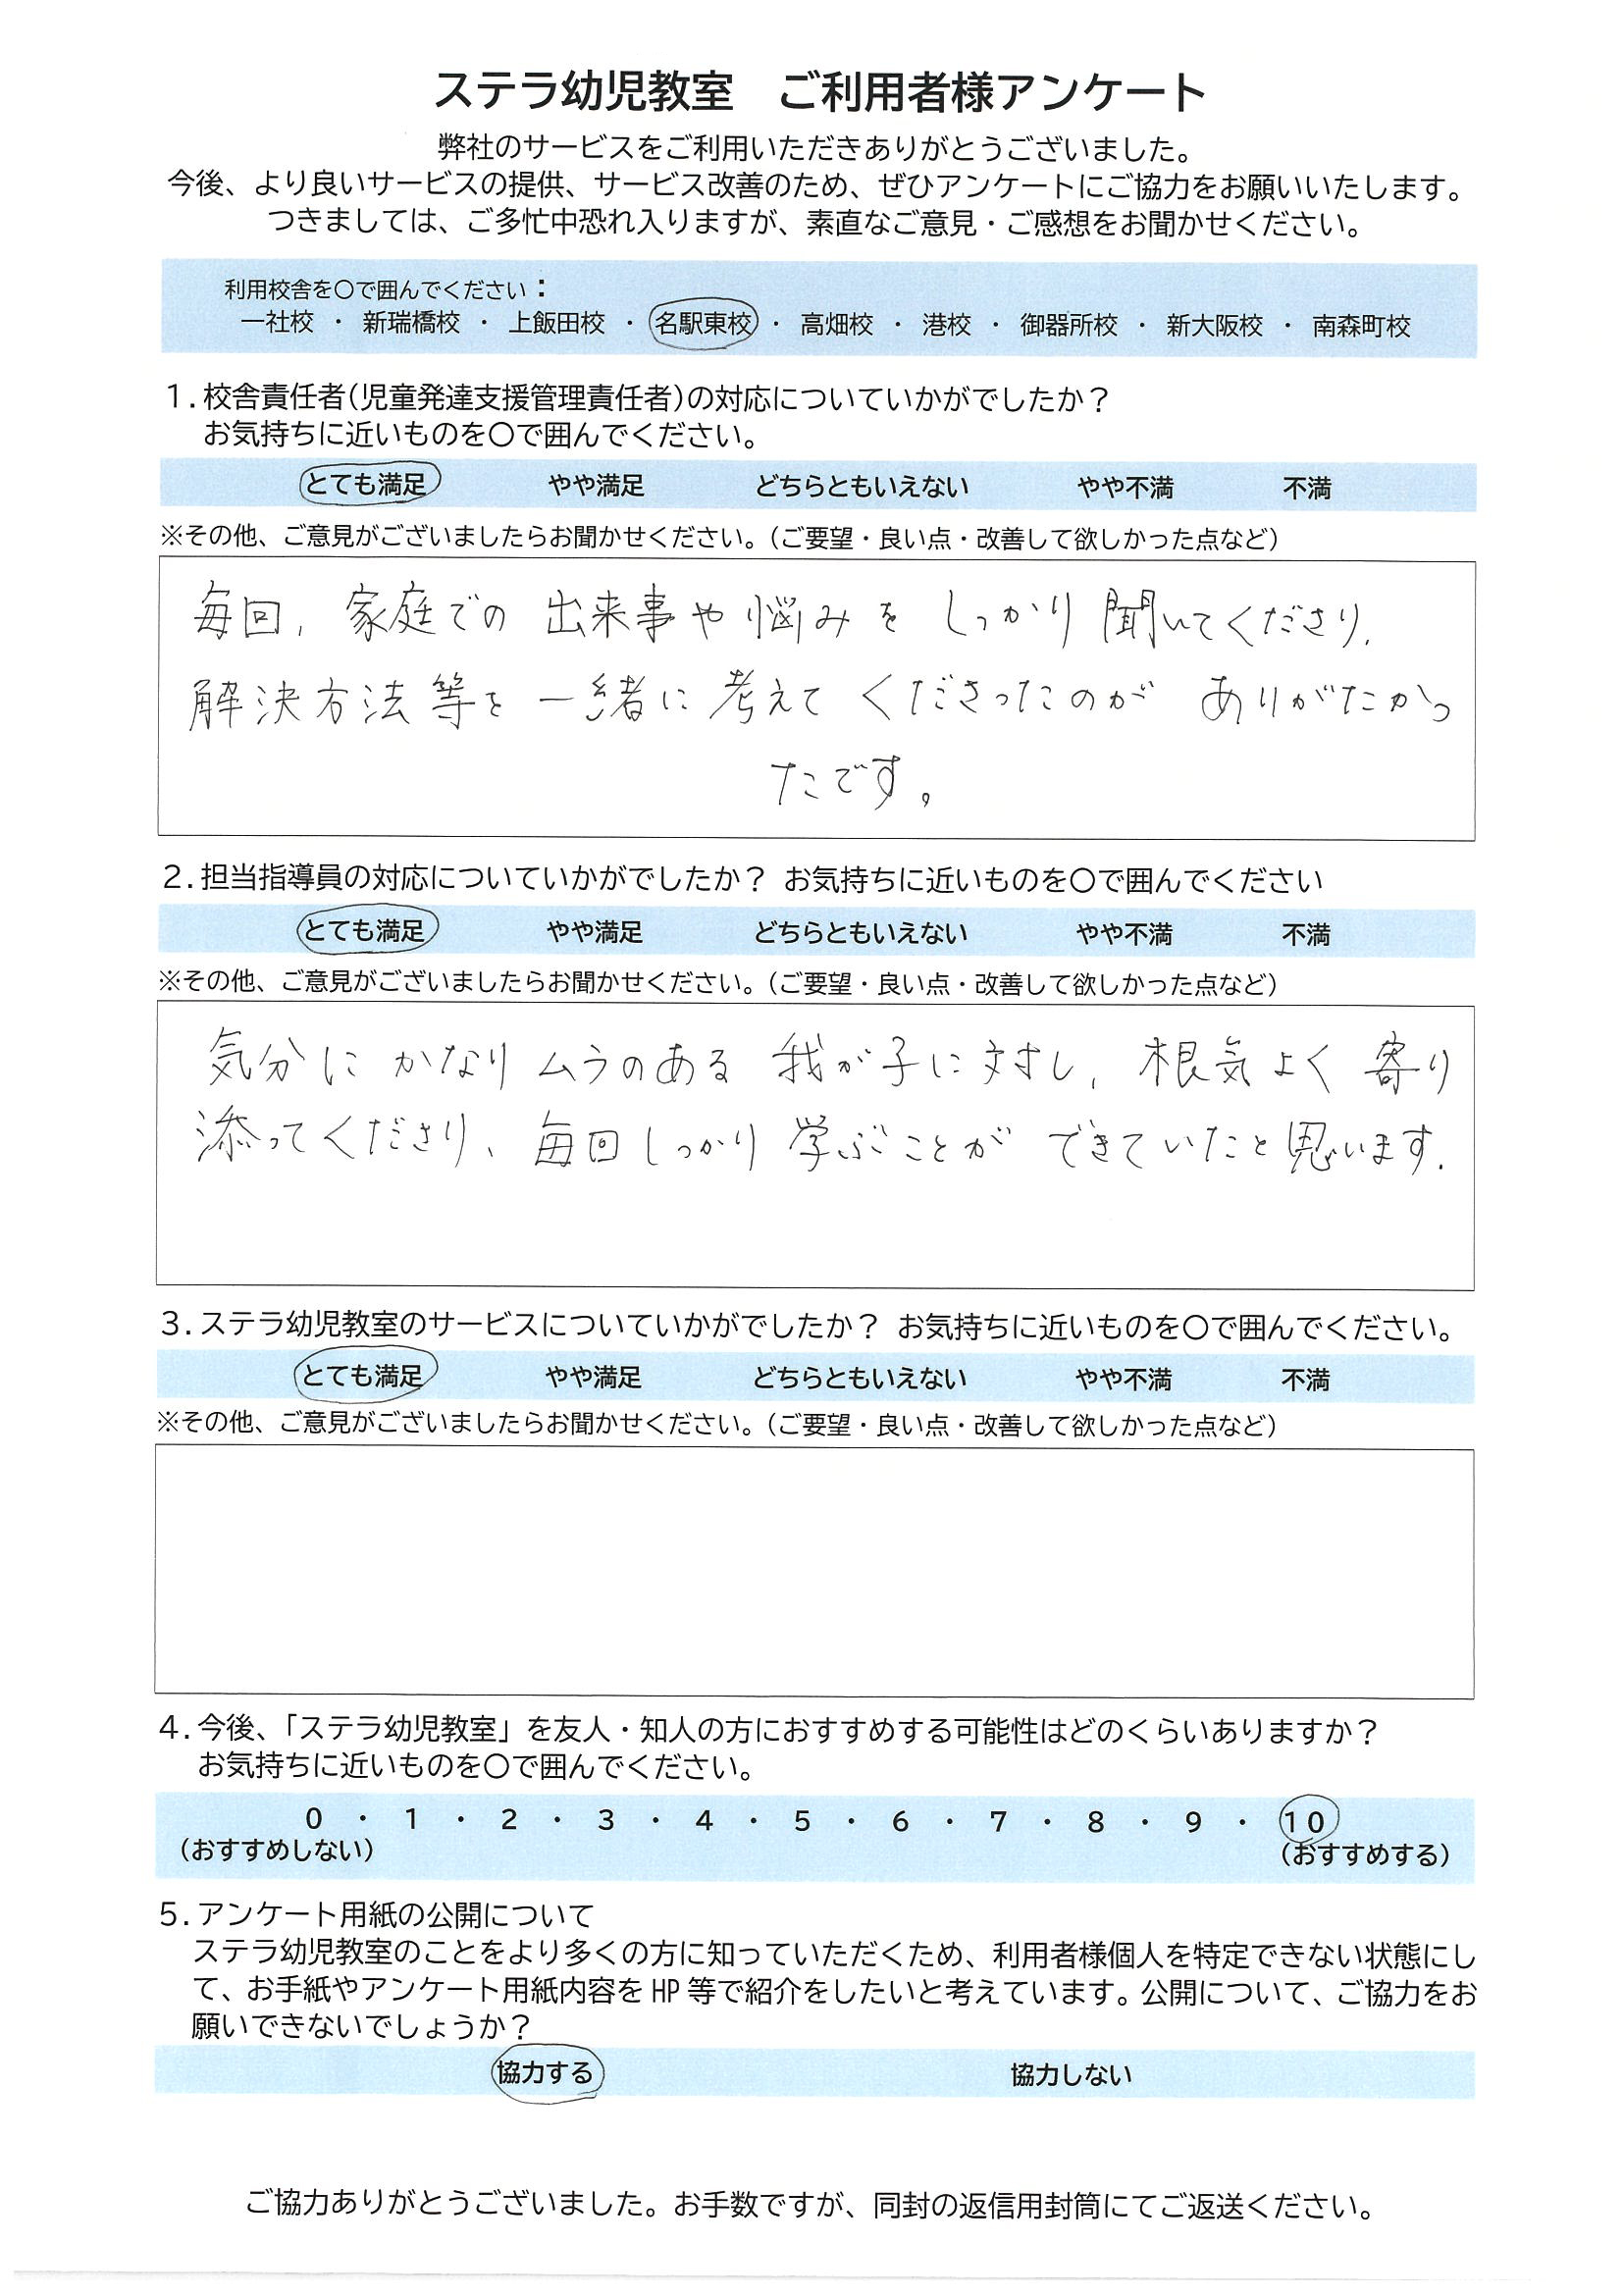 ステラ幼児教室　ご利用者様アンケート
弊社のサービスをご利用いただきありがとうございました。
今後、より良いサービスの提供、サービス改善のため、ぜひアンケートにご協力をお願いいたします。
つきましては、ご多忙中恐れ入りますが、素直なご意見・ご感想をお聞かせください。
利用校舎を〇で囲んでください：
一社校 ・ 新瑞橋校 ・ 上飯田校 ・ 名駅東校 ・ 高畑校 ・ 港校 ・ 御器所校 ・ 新大阪校 ・ 南森町校
１．校舎責任者（児童発達支援管理責任者）の対応についていかがでしたか？
お気持ちに近いものを〇で囲んでください。
とても満足　やや満足　どちらともいえない　やや不満　不満
※その他、ご意見がございましたらお聞かせください。（ご要望・良い点・改善して欲しかった点など）
毎回，家庭での出来事や悩みをしっかり聞いてくださり，
解決方法等を一緒に考えてくださったのがありがたかっ
たです。
２．担当指導員の対応についていかがでしたか？ お気持ちに近いものを〇で囲んでください
とても満足　やや満足　どちらともいえない　やや不満　不満
※その他、ご意見がございましたらお聞かせください。（ご要望・良い点・改善して欲しかった点など）
気分にかなりムラのある我が子に対し，根気よく寄り
添ってくださり、毎回しっかり学ぶことができていたと思います．
３．ステラ幼児教室のサービスについていかがでしたか？ お気持ちに近いものを〇で囲んでください。
とても満足　やや満足　どちらともいえない　やや不満　不満
※その他、ご意見がございましたらお聞かせください。（ご要望・良い点・改善して欲しかった点など）
４．今後、「ステラ幼児教室」を友人・知人の方におすすめする可能性はどのくらいありますか？
お気持ちに近いものを〇で囲んでください。
０ ・ １ ・ ２ ・ ３ ・ ４ ・ ５ ・ ６ ・ ７ ・ ８ ・ ９ ・ １０
（おすすめしない）　（おすすめする）
５．アンケート用紙の公開について
ステラ幼児教室のことをより多くの方に知っていただくため、利用者様個人を特定できない状態にし
て、お手紙やアンケート用紙内容を HP 等で紹介をしたいと考えています。公開について、ご協力をお
願いできないでしょうか？
協力する　協力しない
ご協力ありがとうございました。お手数ですが、同封の返信用封筒にてご返送ください。